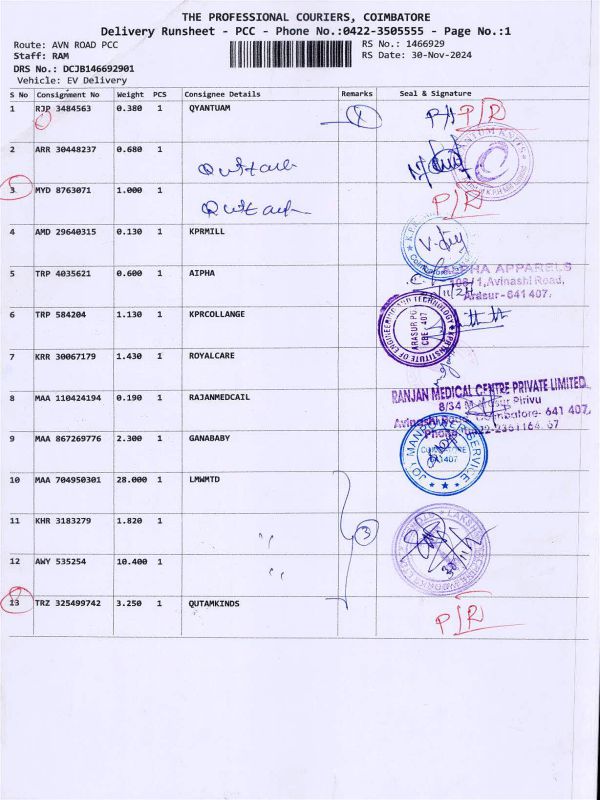 THE PROFESSIONAL COURIERS, COIMBATORE
Delivery Runsheet - PCC - Phone No.:0422-3505555 - Page No.:1
Route: AVN ROAD PCC
RS No.: 1466929
Staff: RAM
RS Date: 30-Nov-2024
DRS No.: DCJB146692901
Vehicle: EV Delivery
S No Consignment No Weight PCS Consignee Details Remarks Seal & Signature
1 RJP 3484563 0.380 1 QYANTUAM P/R
2 ARR 30448237 0.680 1
3 MYD 8763071 1.000 1 P/R
4 AMD 29640315 0.130 1 KPRMILL
5 TRP 4035621 0.600 1 AIPHA
ALPHA APPARELS
108/1, Avinashi Road,
Arasur - 641 407.
6 TRP 584204 1.130 1 KPRCOLLANGE
KPR INSTITUTE OF ENGINEERING AND TECHNOLOGY
ARASUR PO
CBE - 407
7 KRR 30067179 1.430 1 ROYALCARE
8 MAA 110424194 0.190 1 RAJANMEDCAIL
RANJAN MEDICAL CENTRE PRIVATE LIMITED
8/34 Pirivu
Coimbatore- 641 407,
9 MAA 867269776 2.300 1 GANABABY
10 MAA 704950301 28.000 1 LMWMTD
11 KHR 3183279 1.820 1 "
3
12 AWY 535254 10.400 1 "
13 TRZ 325499742 3.250 1 QUTAMKINDS P/R